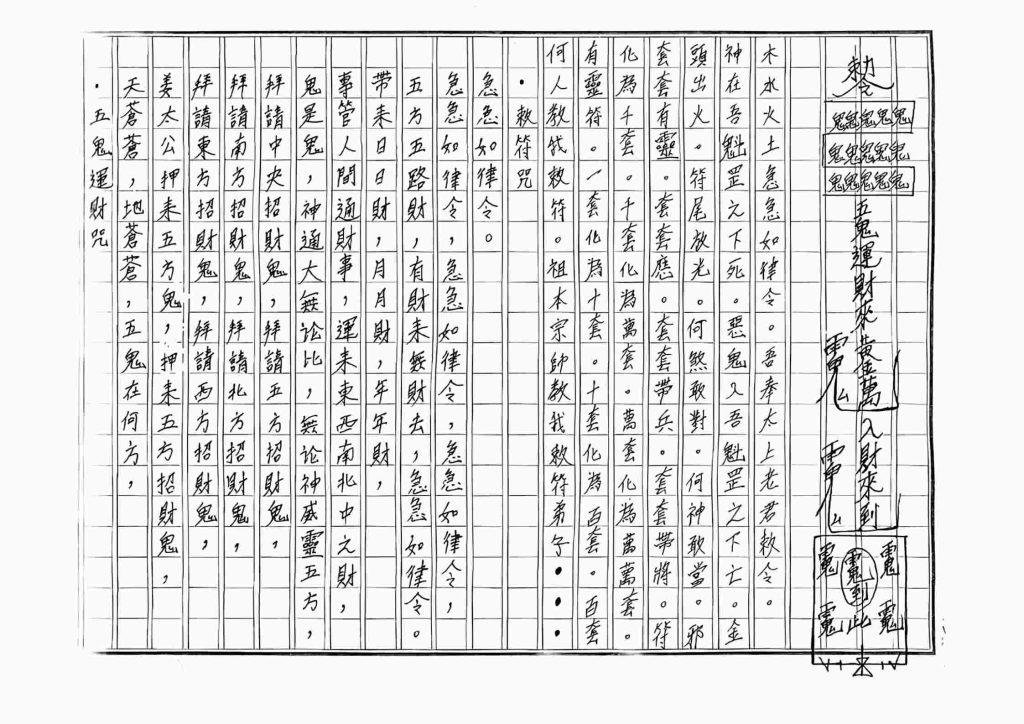 ·五鬼運財咒
天蒼蒼，地蒼蒼，五鬼在何方，
姜太公押来五方鬼，押来五方招財鬼，
拜請東方招財鬼，拜請西方招財鬼，
拜請南方招財鬼，拜請北方招財鬼，
拜請中央招財鬼，拜請五方招財鬼，
鬼是鬼，神通大無论比，無论神威靈五方，
事管人間通財事，運来東西南北中之財，
带来日日財，月月財，年年財，
五方五路財，有財来無財去，急急如律令。
急急如律令，急急如律令，急急如律令，
急急如律令。
·敕符咒
何人教我敕符。祖本宗師教我敕符弟子••••
有靈符。一套化為十套。十套化為百套。百套
化為千套。千套化為萬套。萬套化為萬萬套。
套套有靈。套套應。套套帶兵。套套帶將。符
頭出火。符尾放光。何煞敢對。何神敢當。邪
神在吾魁罡之下死。惡鬼入吾魁罡之下亡。金
木水火土急急如律令。吾奉太上老君敕令。
敕令
鬼鬼鬼鬼鬼
鬼鬼鬼鬼鬼
鬼鬼鬼鬼鬼
五鬼運財來黃金萬入財來到
到此